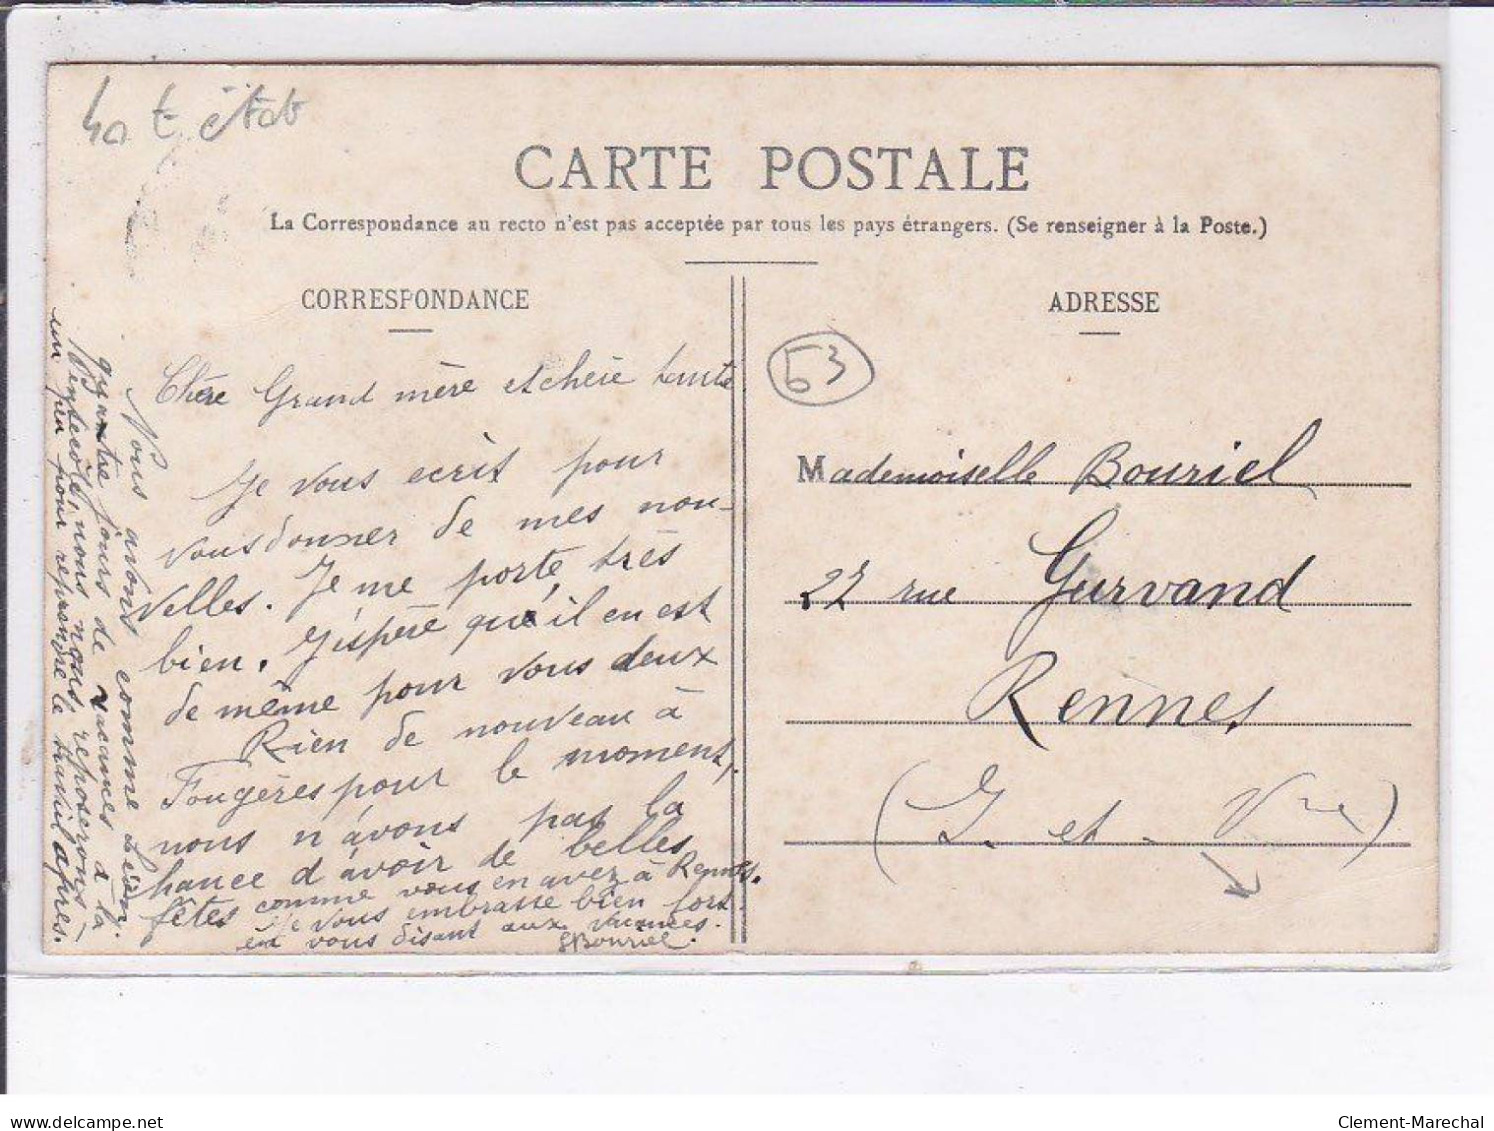 CARTE POSTALE
La Correspondance au recto n'est pas acceptée par tous les pays étrangers. (Se renseigner à la Poste.)
CORRESPONDANCE
Chère Grand mère et chère tante
Je vous ecrit pour
vous donner de mes nou-
velles. Je me porte très
bien. J'éspère que il en est
de même pour vous deux
Rien de nouveau à
Fougères pour le moment,
nous n'avons pas la
chance d'avoir de belles
fêtes comme vous en avez à Rennes.
Je vous embrasse bien fort
en vous disant aux vacances.
Bouriel.
Nous avons comme Léon
quatre jours de vacances à la
Pentecôte, nous nous reposerons
un peu pour reprendre le travail après.
ADRESSE
53
Mademoiselle Bouriel
22 rue Gurvand
Rennes
(I. et - Vne)
delcampe.net
Clement-Marechal